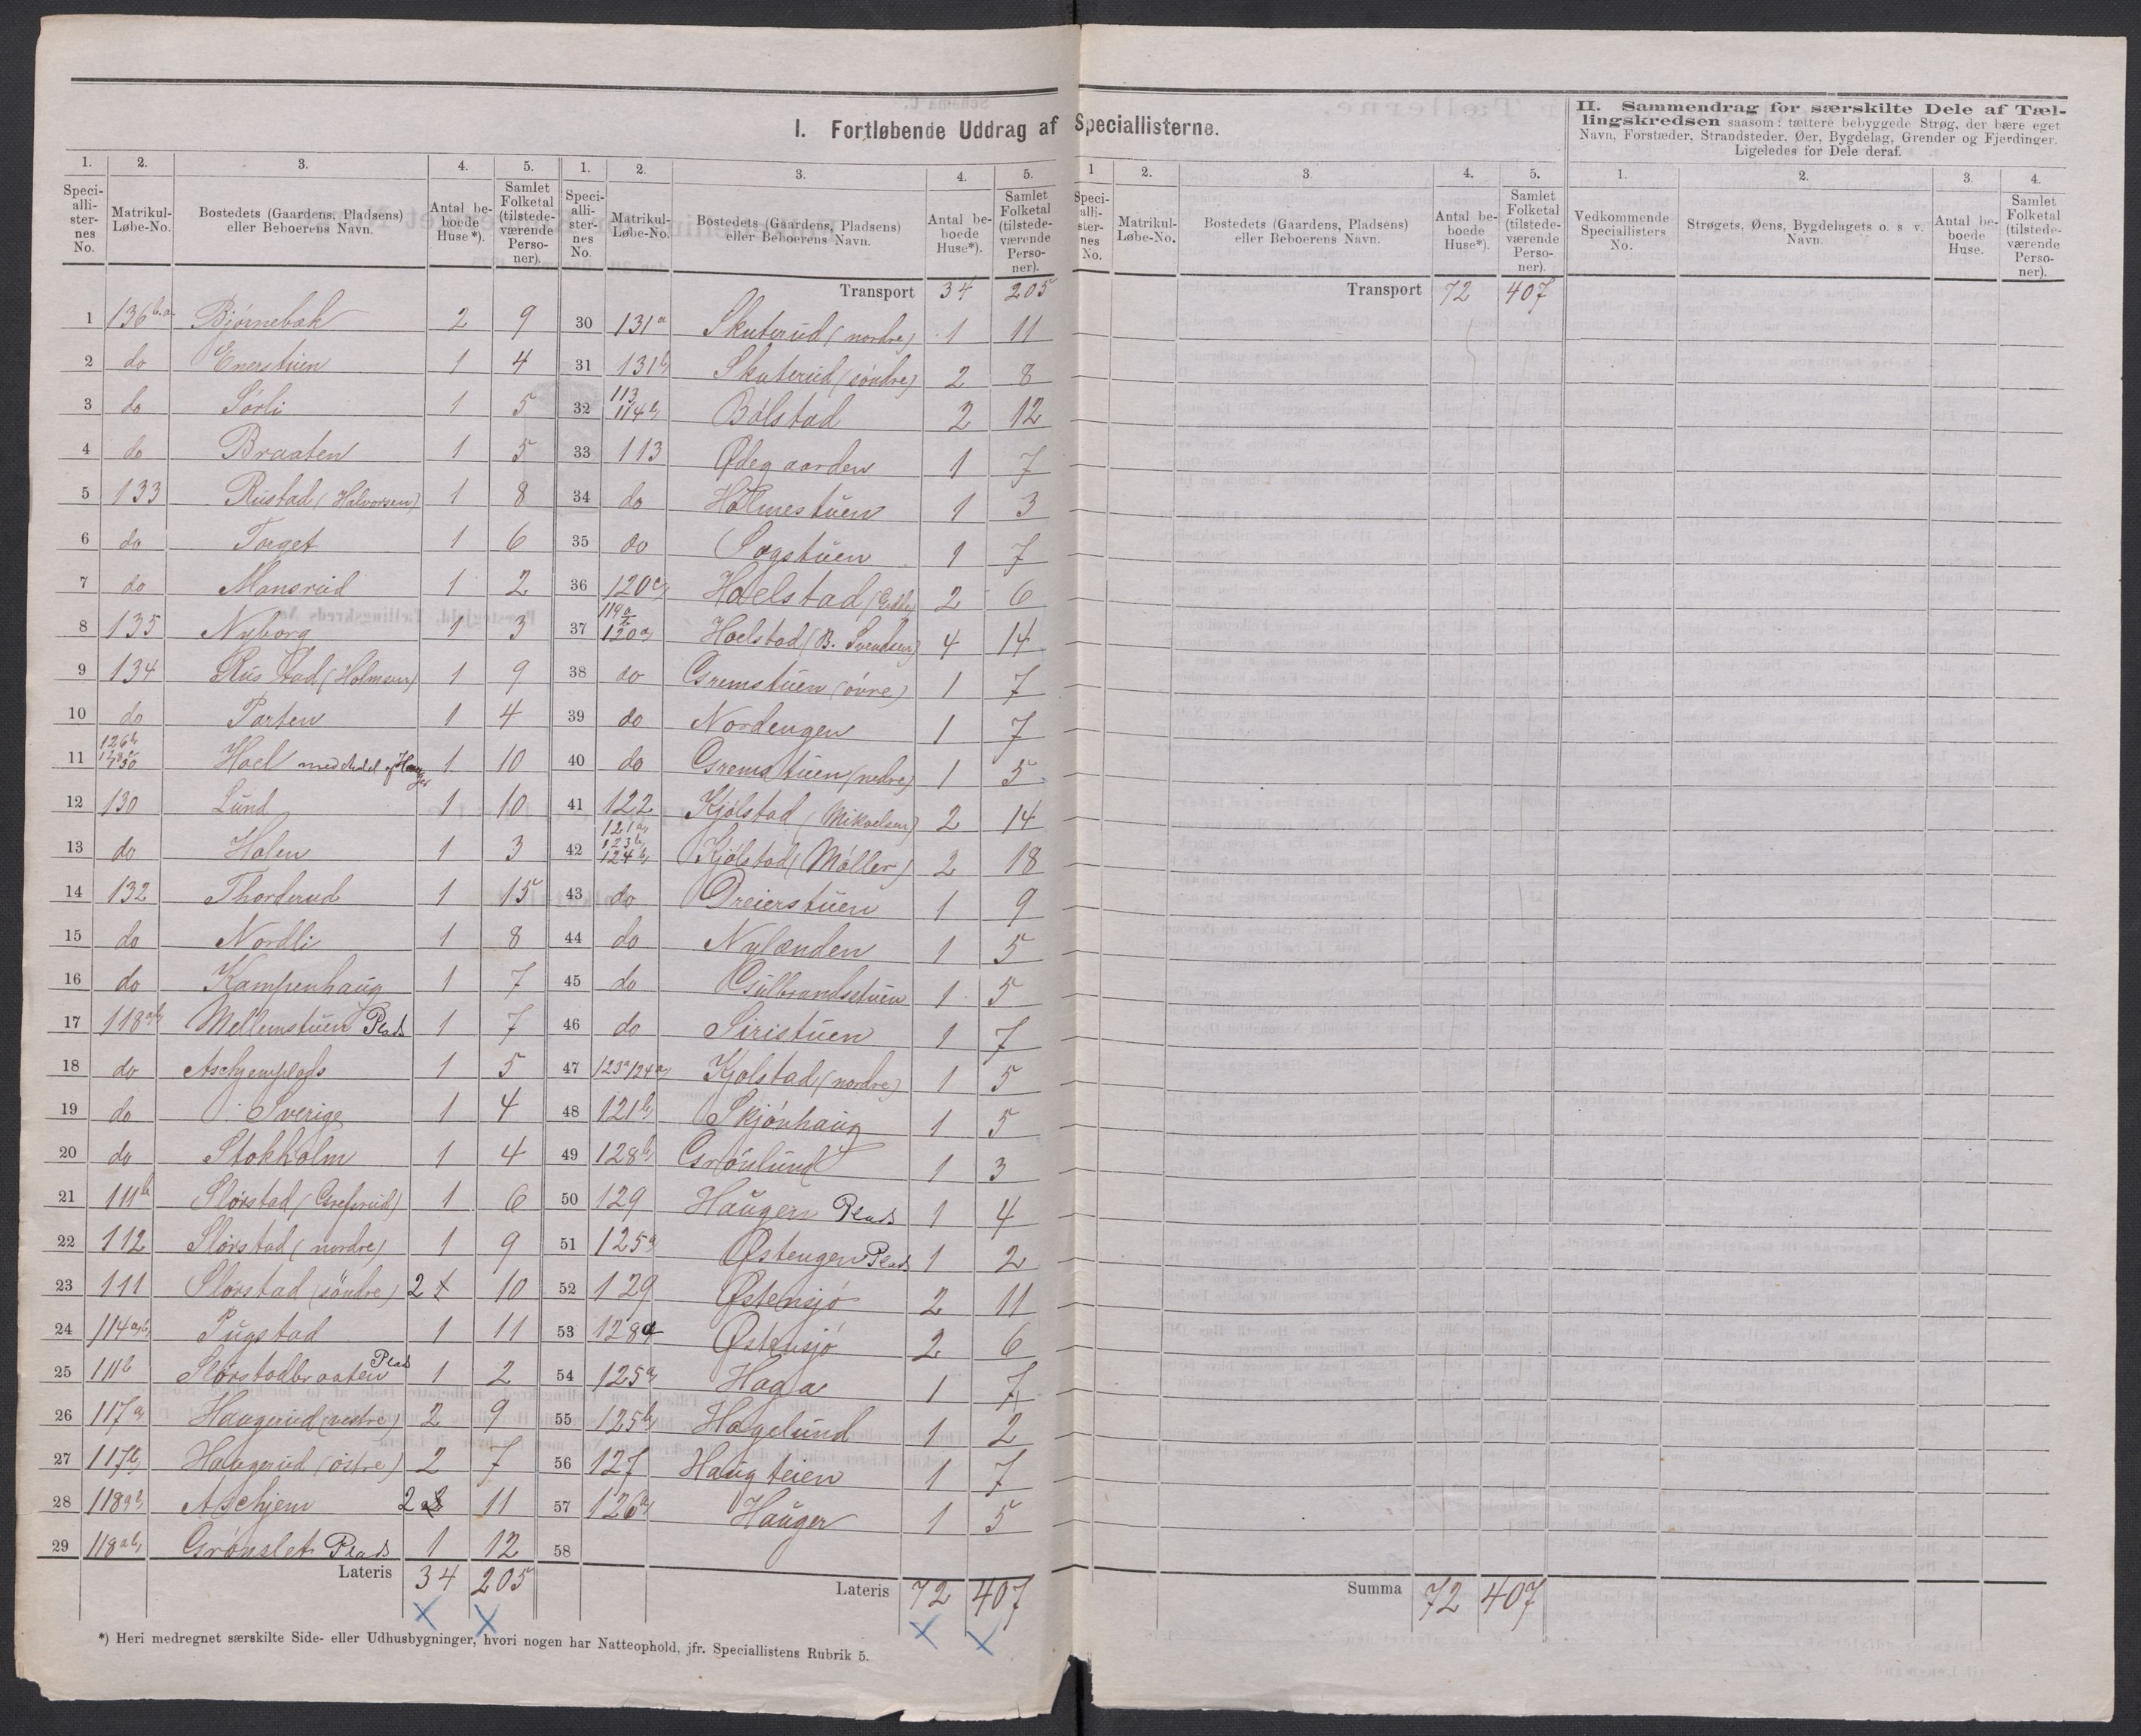 I. Fortløbende Uddrag af Speciallisterne.
1. 2. 3. 4. 5.
Speciallisternes No. Matrikul-Løbe-No. Bostedets (Gaardens, Pladsens) eller Beboerens Navn. Antal beboede Huse*). Samlet Folketal (tilstedeværende Personer).
1 136 b.a. Bjørnebæk 2 9
2 do Enerstuen 1 4
3 do Sørli 1 5
4 do Braaten 1 5
5 133 Rustad (Halvorsen) 1 8
6 do Torget 1 6
7 do Mansrud 1 2
8 135 Nyborg 1 3
9 134 Rustad (Holmsen) 1 9
10 do Parten 1 4
11 126b Hoel med del af Hauger 1 10
12 130 Lund 1 10
13 do Holen 1 3
14 132 Thorderud 1 15
15 do Nordli 1 8
16 do Kampenhaug 1 7
17 118ab Mellemstuen Plads 1 7
18 do Aschjemplads 1 5
19 do Sverige 1 4
20 do Stokholm 1 4
21 111b Slørstad (Grefsrud) 1 6
22 112 Slørstad (nordre) 1 9
23 111 Slørstad (söndre) 2 10
24 114a,b Pugstad 1 11
25 111b Slørstadbraaten Plads 1 2
26 117a Haugerud (vestre) 2 9
27 117b Haugerud (østre) 2 7
28 118ab Aschjem 2 11
29 118ab Grønslet Plads 1 12
Lateris 34 205
1. 2. 3. 4. 5.
Speciallisternes No. Matrikul-Løbe-No. Bostedets (Gaardens, Pladsens) eller Beboerens Navn. Antal beboede Huse*). Samlet Folketal (tilstedeværende Personer).
Transport 34 205
30 131a Skuterud (nordre) 1 11
31 131b Skuterud (söndre) 2 8
32 113 114b Bølstad 2 12
33 113 Ødegaarden 1 7
34 do Holmestuen 1 3
35 do Sagstuen 1 7
36 120c Hoelstad 2 6
37 119a 120a Hoelstad (B. Svendsen) 4 14
38 do Gremstuen (øvre) 1 7
39 do Nordengen 1 7
40 do Gremstuen (nedre) 1 5
41 122 Kjølstad (Mikaelsen) 2 14
42 121a 123b 124b Kjølstad (Møller) 2 18
43 do Dreierstuen 1 9
44 do Nylænden 1 5
45 do Gulbrandsstuen 1 5
46 do Siristuen 1 7
47 123a 124a Kjølstad (nordre) 1 5
48 121b Skjønhaug 1 5
49 128b Grønlund 1 3
50 129 Haugen Plads 1 4
51 125a Østengen Plads 1 2
52 129 Østensjø 2 11
53 128a Østensjø 2 6
54 125a Haga 1 7
55 125b Hagelund 1 2
56 127 Haugteien 1 7
57 126a Hauger 1 5
58
Lateris 72 407
*) Heri medregnet særskilte Side- eller Udhusbygninger, hvori nogen har Natteophold, jfr. Speciallistens Rubrik 5.
1 2. 3. 4. 5.
Speciallisternes No. Matrikul-Løbe-No. Bostedets (Gaardens, Pladsens) eller Beboerens Navn. Antal beboede Huse*). Samlet Folketal (tilstedeværende Personer).
Transport 72 407
Summa 72 407
II. Sammendrag for særskilte Dele af Tællingskredsen saasom: tættere bebyggede Strøg, der bære eget
Navn, Forstæder, Strandsteder, Øer, Bygdelag, Grender og Fjerdinger.
Ligeledes for Dele deraf.
1. 2. 3. 4.
Vedkommende Speciallisters No. Strøgets, Øens, Bygdelagets o. s. v. Navn. Antal beboede Huse. Samlet Folketal (tilstedeværende Personer).